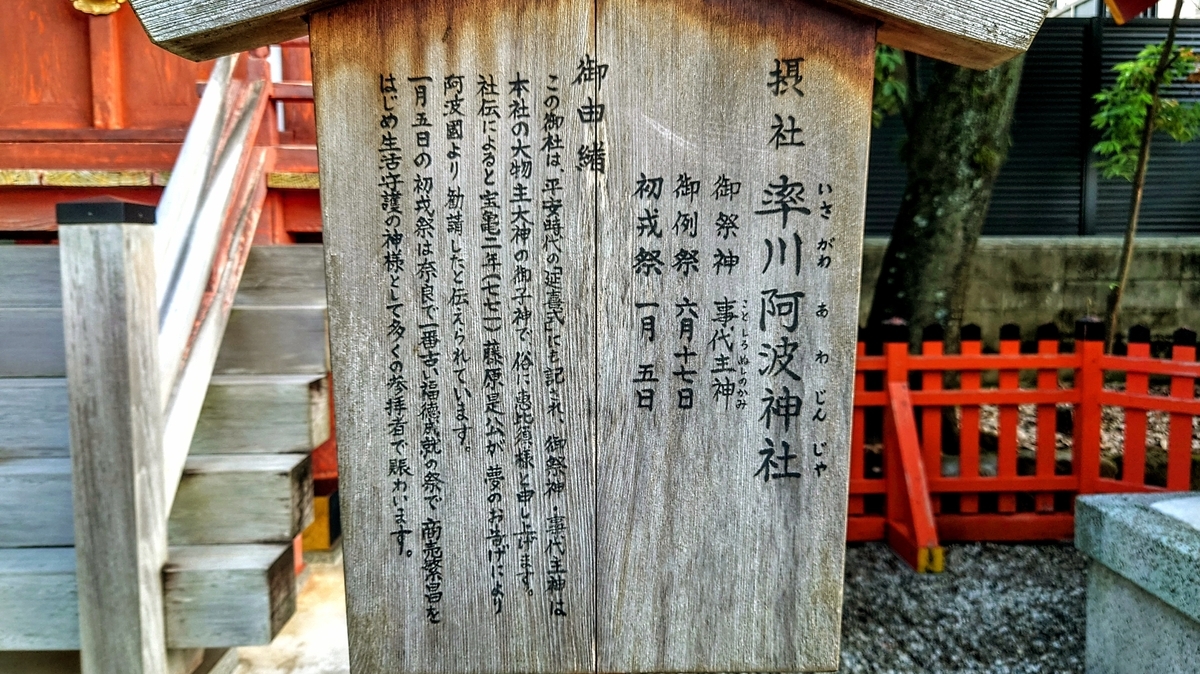 摂社 率川阿波神社
いさがわ あわじんじゃ
御祭神 事代主神
ことしろぬしのかみ
御例祭 六月十七日
初戎祭 一月 五日
御由緒
この御社は、平安時代の「延喜式」にも記され、御祭神・事代主神は
本社の大物主大神の御子神で、俗に恵比須様と申し上げます。
社伝によると宝亀二年(七七一)藤原是公が夢のお告げにより
阿波國より勧請したと伝えられています。
一月五日の初戎祭は奈良で一番古い福徳成就の祭で商売繁昌を
はじめ生活守護の神様として多くの参拝者で賑わいます。